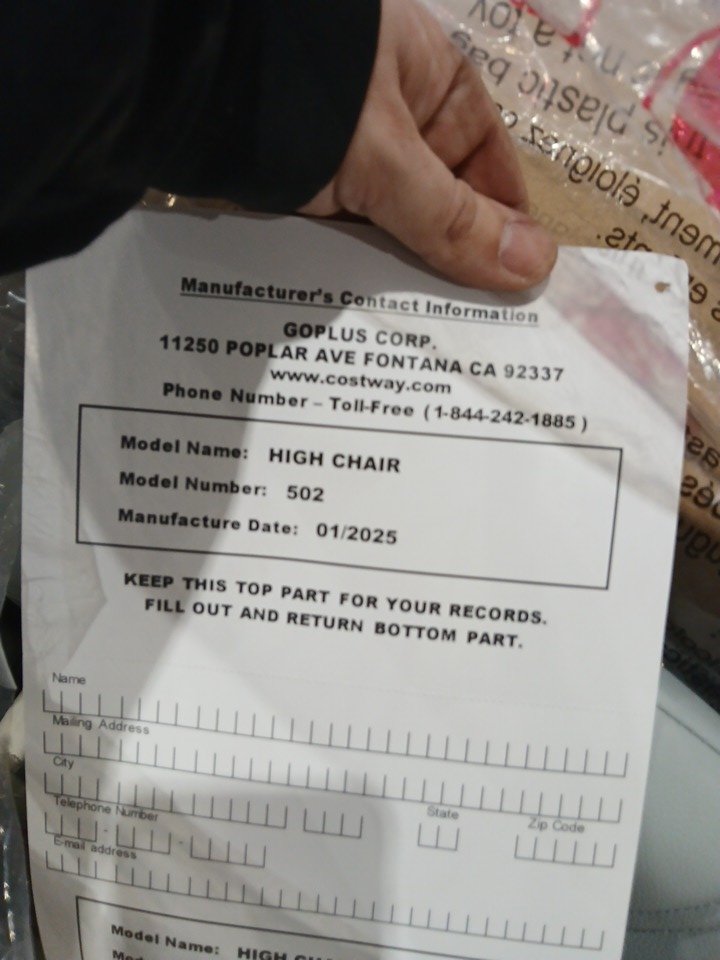 Manufacturer's Contact Information
GOPLUS CORP.
11250 POPLAR AVE FONTANA CA 92337
www.costway.com
Phone Number – Toll-Free (1-844-242-1885)
Model Name: HIGH CHAIR
Model Number: 502
Manufacture Date: 01/2025
KEEP THIS TOP PART FOR YOUR RECORDS.
FILL OUT AND RETURN BOTTOM PART.
Name
Mailing Address
City
State
Zip Code
Telephone Number
E-mail address
Model Name:
not a toy
is plastic bag
éloignez